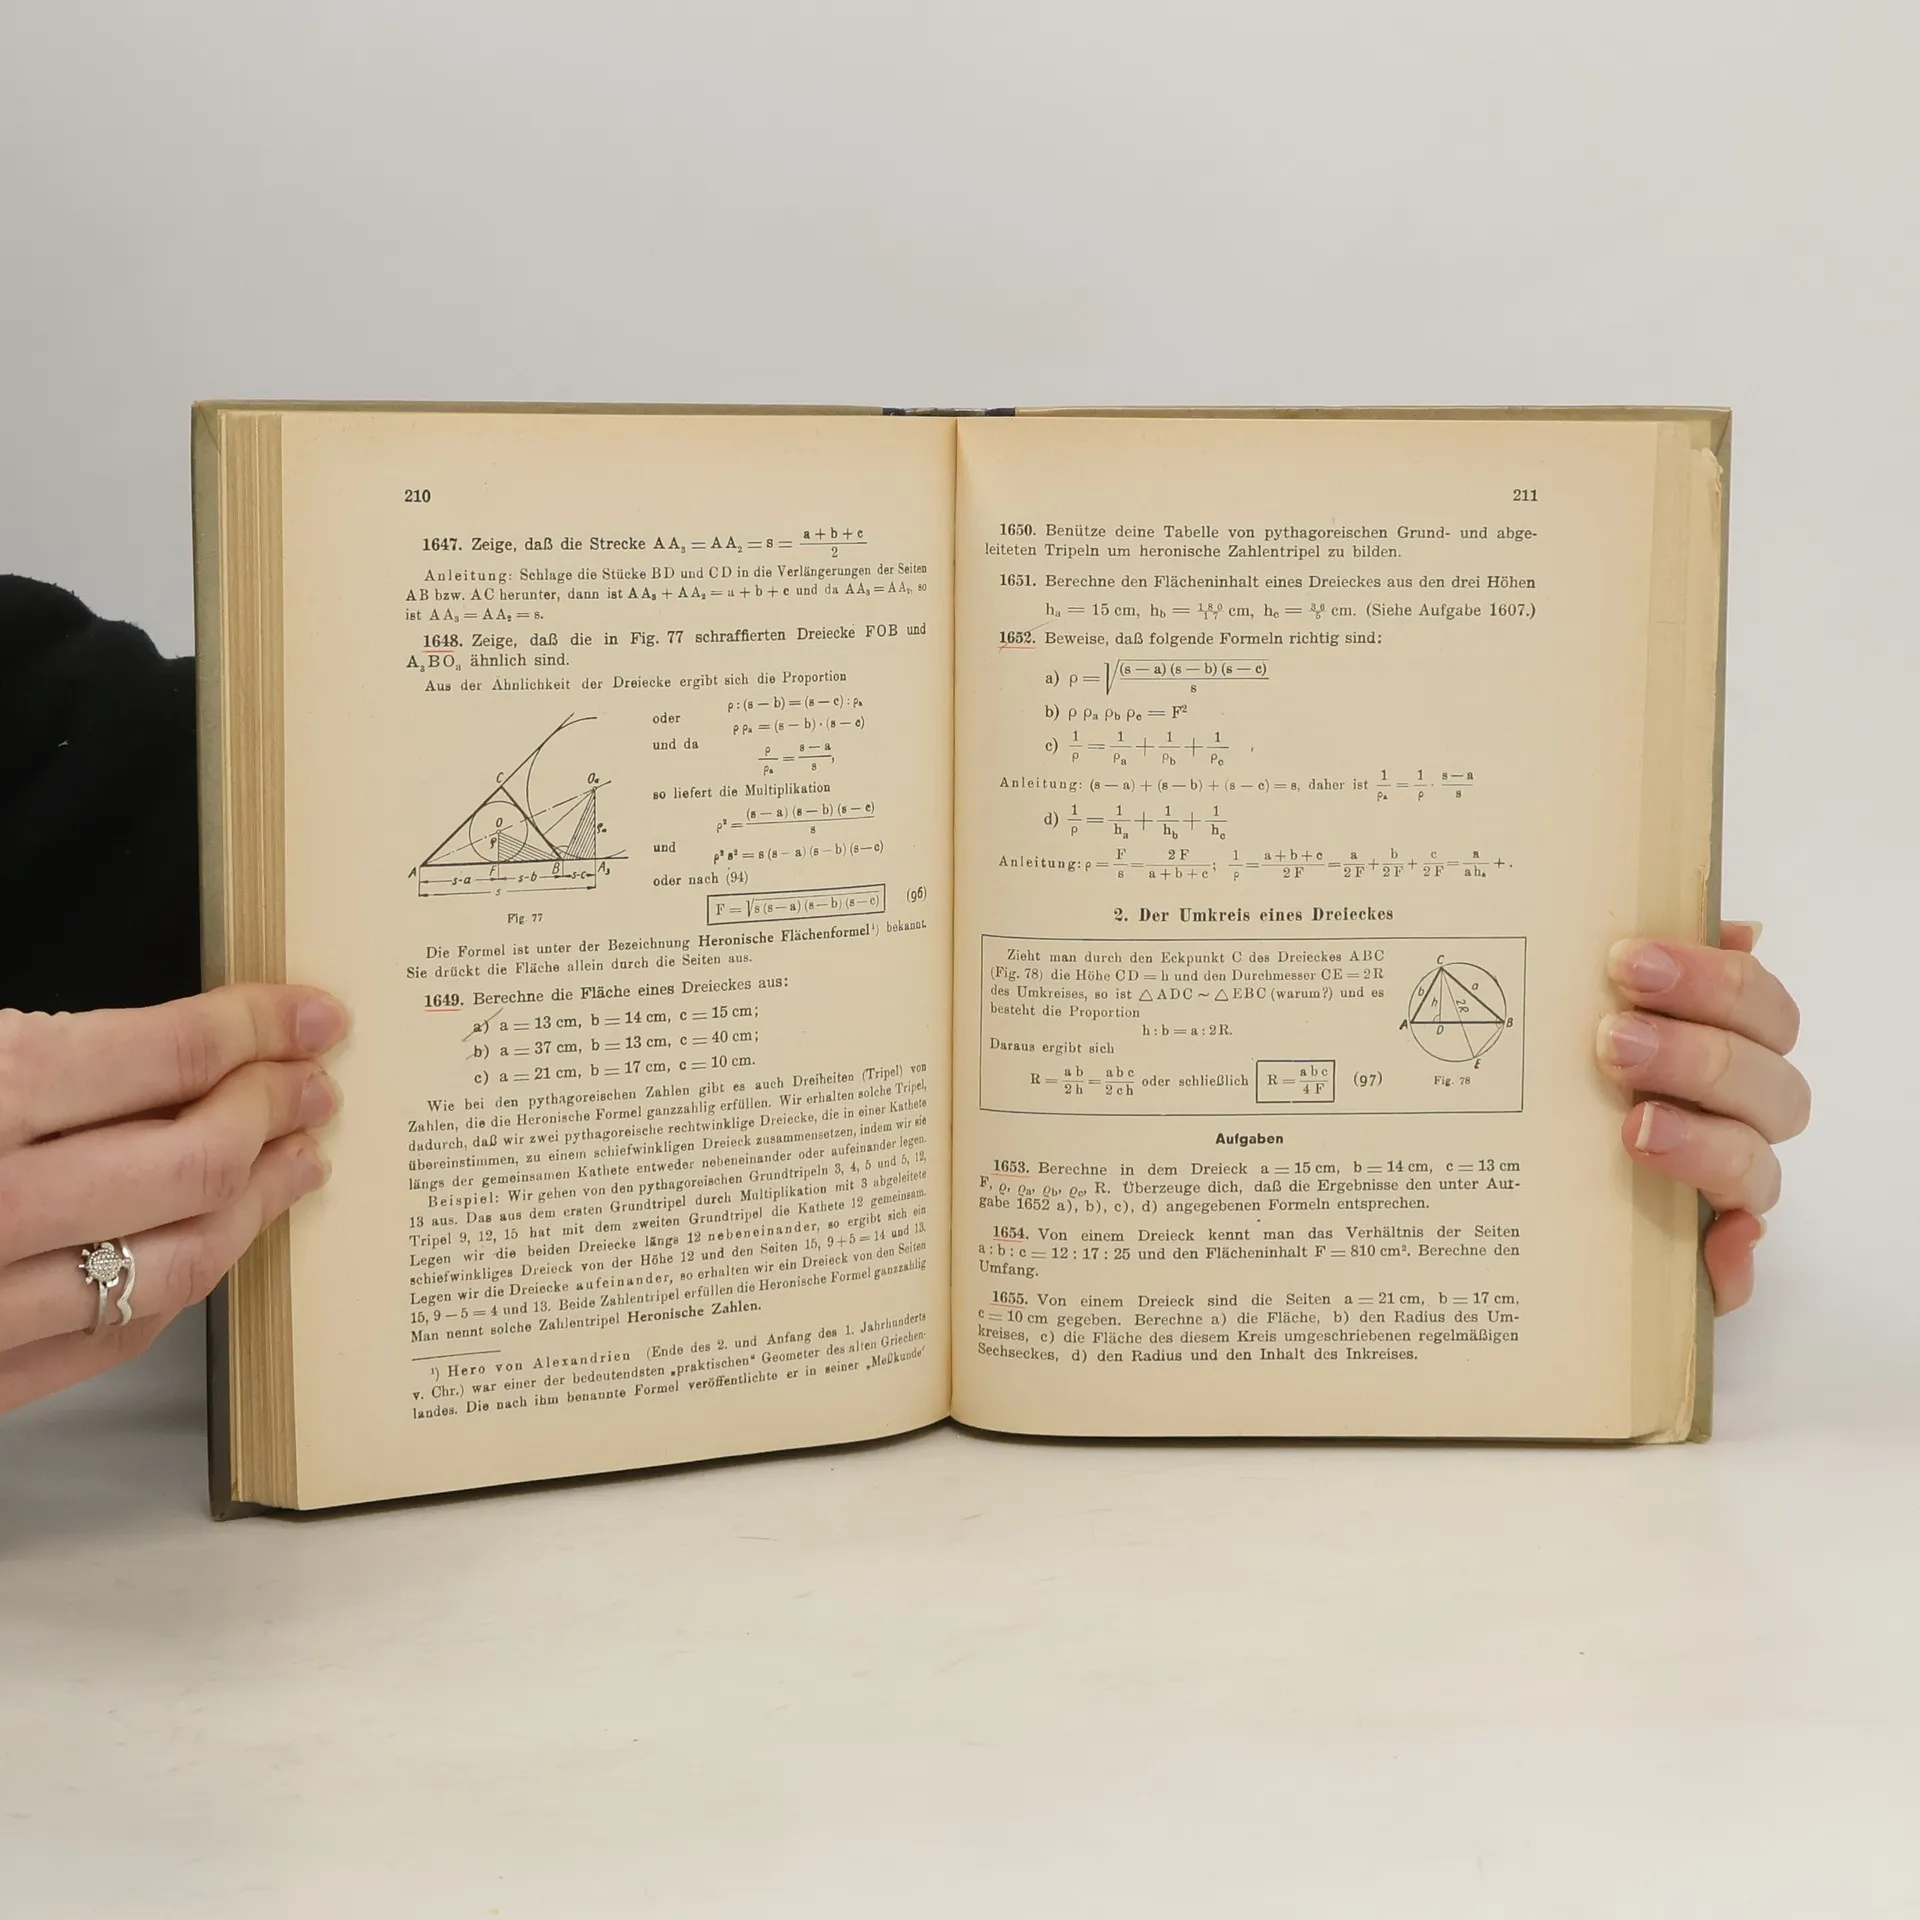 210
1647. Zeige, daß die Strecke A A₃ = A A₂ = s = (a + b + c)/2
Anleitung: Schlage die Stücke BD und CD in die Verlängerungen der Seiten
AB bzw. AC herunter, dann ist A A₃ + A A₂ = a + b + c und da A A₃ = A A₂, so
ist A A₃ = A A₂ = s.
1648. Zeige, daß die in Fig. 77 schraffierten Dreiecke FOB und
A₃BOₐ ähnlich sind.
Aus der Ähnlichkeit der Dreiecke ergibt sich die Proportion
ρ : (s — b) = (s — c) : ρₐ
oder
ρ ρₐ = (s — b) · (s — c)
und da
ρ/ρₐ = (s — a)/s,
so liefert die Multiplikation
ρ² = (s — a) (s — b) (s — c)/s
und
ρ² s² = s (s — a) (s — b) (s — c)
oder nach (94)
F = √s (s — a) (s — b) (s — c) (96)
C Oₐ
O ρ ρₐ
A F B A₃
s-a s-b s-c
s
Fig. 77
Die Formel ist unter der Bezeichnung Heronische Flächenformel¹) bekannt.
Sie drückt die Fläche allein durch die Seiten aus.
1649. Berechne die Fläche eines Dreieckes aus:
a) a = 13 cm, b = 14 cm, c = 15 cm;
b) a = 37 cm, b = 13 cm, c = 40 cm;
c) a = 21 cm, b = 17 cm, c = 10 cm.
Wie bei den pythagoreischen Zahlen gibt es auch Dreiheiten (Tripel) von
Zahlen, die die Heronische Formel ganzzahlig erfüllen. Wir erhalten solche Tripel,
dadurch, daß wir zwei pythagoreische rechtwinklige Dreiecke, die in einer Kathete
übereinstimmen, zu einem schiefwinkligen Dreieck zusammensetzen, indem wir sie
längs der gemeinsamen Kathete entweder nebeneinander oder aufeinander legen.
Beispiel: Wir gehen von den pythagoreischen Grundtripeln 3, 4, 5 und 5, 12,
13 aus. Das aus dem ersten Grundtripel durch Multiplikation mit 3 abgeleitete
Tripel 9, 12, 15 hat mit dem zweiten Grundtripel die Kathete 12 gemeinsam.
Legen wir die beiden Dreiecke längs 12 nebeneinander, so ergibt sich ein
schiefwinkliges Dreieck von der Höhe 12 und den Seiten 15, 9 + 5 = 14 und 13.
Legen wir die Dreiecke aufeinander, so erhalten wir ein Dreieck von den Seiten
15, 9 — 5 = 4 und 13. Beide Zahlentripel erfüllen die Heronische Formel ganzzahlig
Man nennt solche Zahlentripel Heronische Zahlen.
¹) Hero von Alexandrien (Ende des 2. und Anfang des 1. Jahrhunderts
v. Chr.) war einer der bedeutendsten „praktischen“ Geometer des alten Griechen-
landes. Die nach ihm benannte Formel veröffentlichte er in seiner „Meßkunde“
211
1650. Benütze deine Tabelle von pythagoreischen Grund- und abge-
leiteten Tripeln um heronische Zahlentripel zu bilden.
1651. Berechne den Flächeninhalt eines Dreieckes aus den drei Höhen
hₐ = 15 cm, h_b = 180/17 cm, h_c = 36/5 cm. (Siehe Aufgabe 1607.)
1652. Beweise, daß folgende Formeln richtig sind:
a) ρ = √(s — a) (s — b) (s — c)/s
b) ρ ρₐ ρ_b ρ_c = F²
c) 1/ρ = 1/ρₐ + 1/ρ_b + 1/ρ_c
Anleitung: (s — a) + (s — b) + (s — c) = s, daher ist 1/ρₐ = 1/ρ · (s — a)/s
d) 1/ρ = 1/hₐ + 1/h_b + 1/h_c
Anleitung: ρ = F/s = 2F/(a + b + c); 1/ρ = (a + b + c)/2F = a/2F + b/2F + c/2F = a/ahₐ + .
2. Der Umkreis eines Dreieckes
Zieht man durch den Eckpunkt C des Dreieckes ABC
(Fig. 78) die Höhe CD = h und den Durchmesser CE = 2R
des Umkreises, so ist △ ADC ~ △ EBC (warum?) und es
besteht die Proportion
h : b = a : 2R.
Daraus ergibt sich
R = ab/2h = abc/2ch oder schließlich R = abc/4F (97)
C
b h 2R a
A D B
E
Fig. 78
Aufgaben
1653. Berechne in dem Dreieck a = 15 cm, b = 14 cm, c = 13 cm
F, ϱ, ϱₐ, ϱ_b, ϱ_c, R. Überzeuge dich, daß die Ergebnisse den unter Auf-
gabe 1652 a), b), c), d) angegebenen Formeln entsprechen.
1654. Von einem Dreieck kennt man das Verhältnis der Seiten
a : b : c = 12 : 17 : 25 und den Flächeninhalt F = 810 cm². Berechne den
Umfang.
1655. Von einem Dreieck sind die Seiten a = 21 cm, b = 17 cm,
c = 10 cm gegeben. Berechne a) die Fläche, b) den Radius des Um-
kreises, c) die Fläche des diesem Kreis umgeschriebenen regelmäßigen
Sechseckes, d) den Radius und den Inhalt des Inkreises.